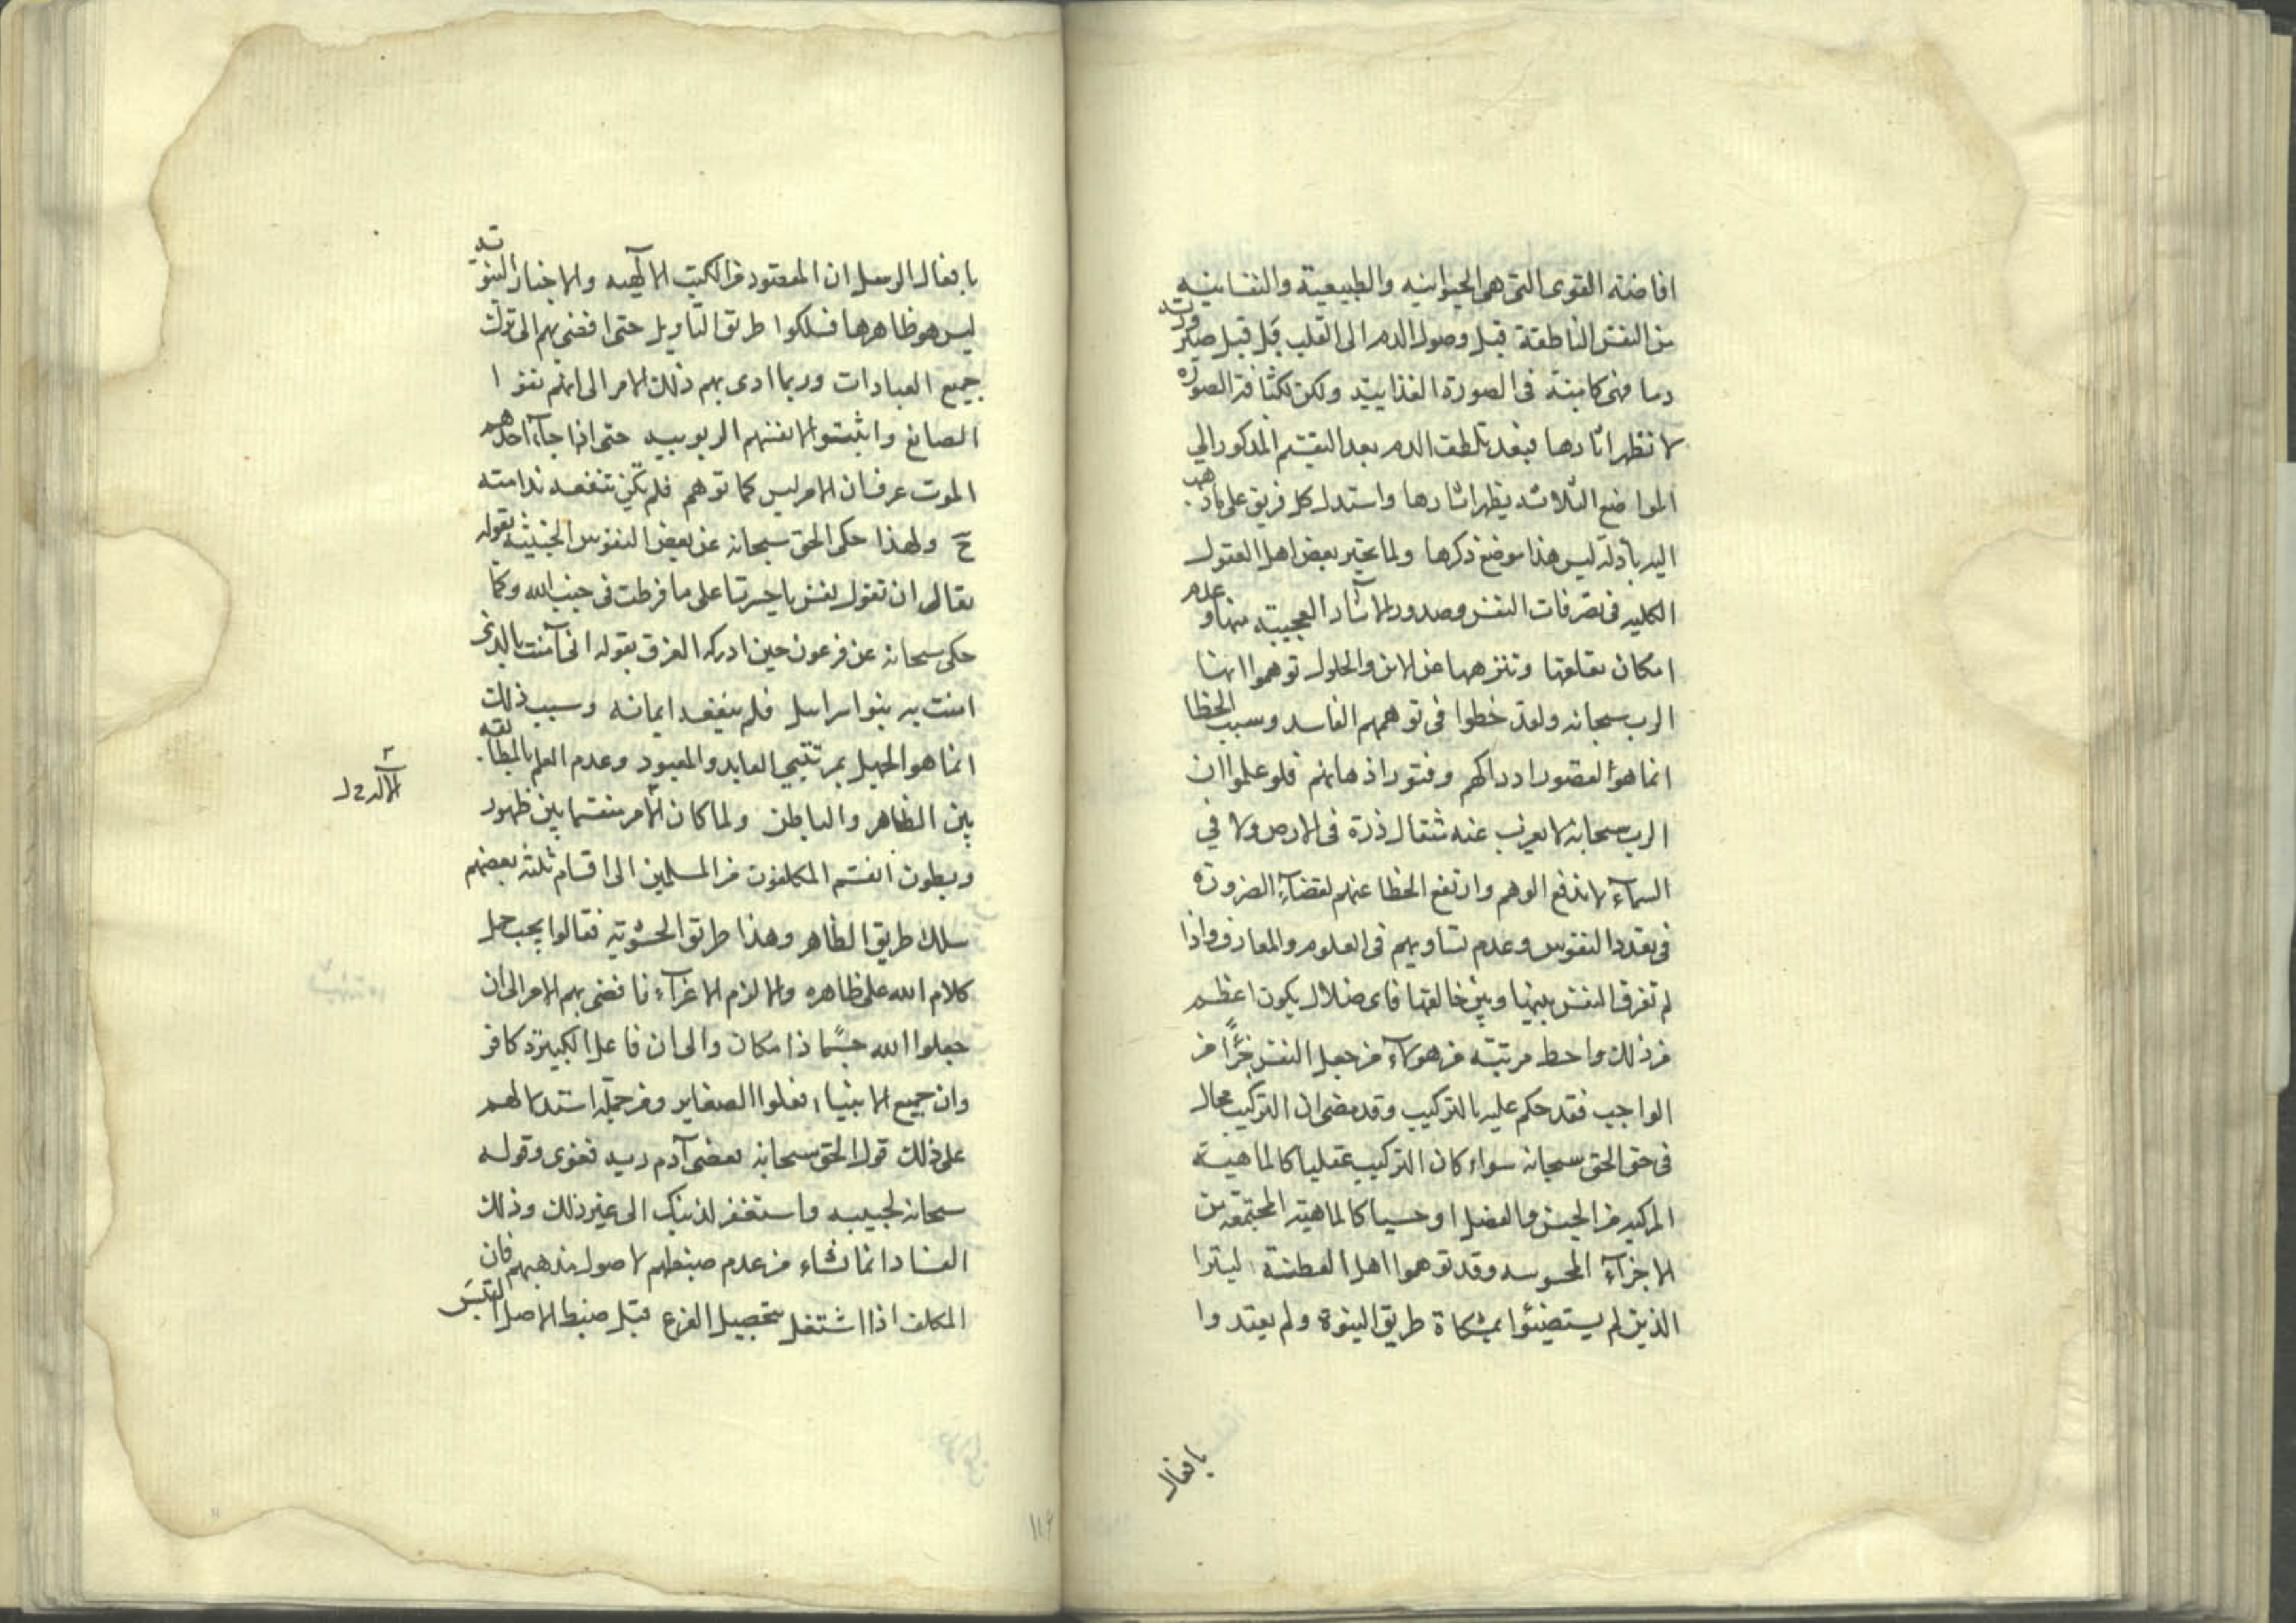 افاضة القوى التى هى الحيوانيه والطبيعية والنفسانيه
من النفس الناطقة قبل وصول الدم الى القلب بل قبل صيرورته
دما فهى كامنة فى الصورة الغذاييه ولكن لكثافة الصورة
لا تظهر اثارها فبعد تلطف الدم بعد التقسيم المذكور الي
المواضع الثلاثه يظهر اثارها واستدل كل فريق على ما ذهب
اليه بادلة ليس هذا موضع ذكرها ولما تحير بعض اهل العقول
الكليه فى تصرفات النفس وصدور الآثار العجيبة منها وعدم
امكان تعلقها وتنزهها عن الاين والحلول توهموا انها
الرب سبحانه ولقد خطوا فى توهمهم الفاسد وسبب الخطا
انما هو القصور ادراكهم وفتور اذهانهم فلو علموا ان
الرب سبحانه لا يعزب عنه مثقال ذرة فى الارض ولا في
السمآء لاندفع الوهم وارتفع الخطا عنهم لقضآء الضرورة
فى تعدد النفوس وعدم تساويهم فى العلوم والمعارف واذا
لم تفرق النفس بينها وبين خالقها فاى ضلال يكون اعظم
من ذلك واحط مرتبة من هولآء من جعل النفس جزًا من
الواجب فقد حكم عليه بالتركيب وقد مضى ان التركيب محال
فى حق الحق سبحانه سواء كان التركيب عقليا كالماهية
المركبه من الجنس والفصل او حسيا كالماهية المجتمعة من
الاجزآء المحسوسه وقد توهموا اهل الفطنة البترا
الذين لم يستضيئوا بمشكاة طريق النبوة ولم يقتدوا
بافعال
بافعال الرسل ان المقصود من الكتب الآلهيه والاخبار النبوية
ليس هو ظاهرها فسلكوا طريق التاويل حتى افضى بهم الى ترك
جميع العبادات وربما ادى بهم ذلك الامر الى انهم نفوا
الصانع واثبتوا لانفسهم الربوبيه حتى اذا جآء احدهم
الموت عرف ان الامر ليس كما توهم فلم تكن تنفعه ندامته
ح ولهذا حكى الحق سبحانه عن بعض النفوس الخبيثه بقوله
تعالى ان تقول نفس يا حسرتا على ما فرطت فى جنب الله وكما
حكى سبحانه عن فرعون حين ادركه الغرق بقوله انى آمنت بالذى
امنت به بنوا اسراىيل فلم ينفعه ايمانه وسبب ذلك
انما هو الجهل بمرتبتي العابد والمعبود وعدم العلم بالمطابقه
بين الظاهر والباطن ولما كان الامر منقسما بين ظهور
وبطون انقسم المكلفون من المسلمين الى اقسام ثلثه بعضهم
سلك طريق الظاهر وهذا طريق الحشوية فقالوا يجب حمل
كلام الله على ظاهره والا لزم الاغرآء فافضى بهم الامر الى ان
جعلوا الله جسًما ذا مكان والى ان فاعل الكبيرة كافر
وان جميع الانبياء فعلوا الصغاير ومن جملة استدلالهم
على ذلك قول الحق سبحانه فعصى آدم ربه فغوى وقوله
سبحانه لحبيبه واستغفر لذنبك الى غير ذلك وذلك
الفساد انما نشاء من عدم ضبطهم لاصول مذهبهم فان
المكلف اذا اشتغل بتحصيل الفرع قبل ضبط الاصل التبس